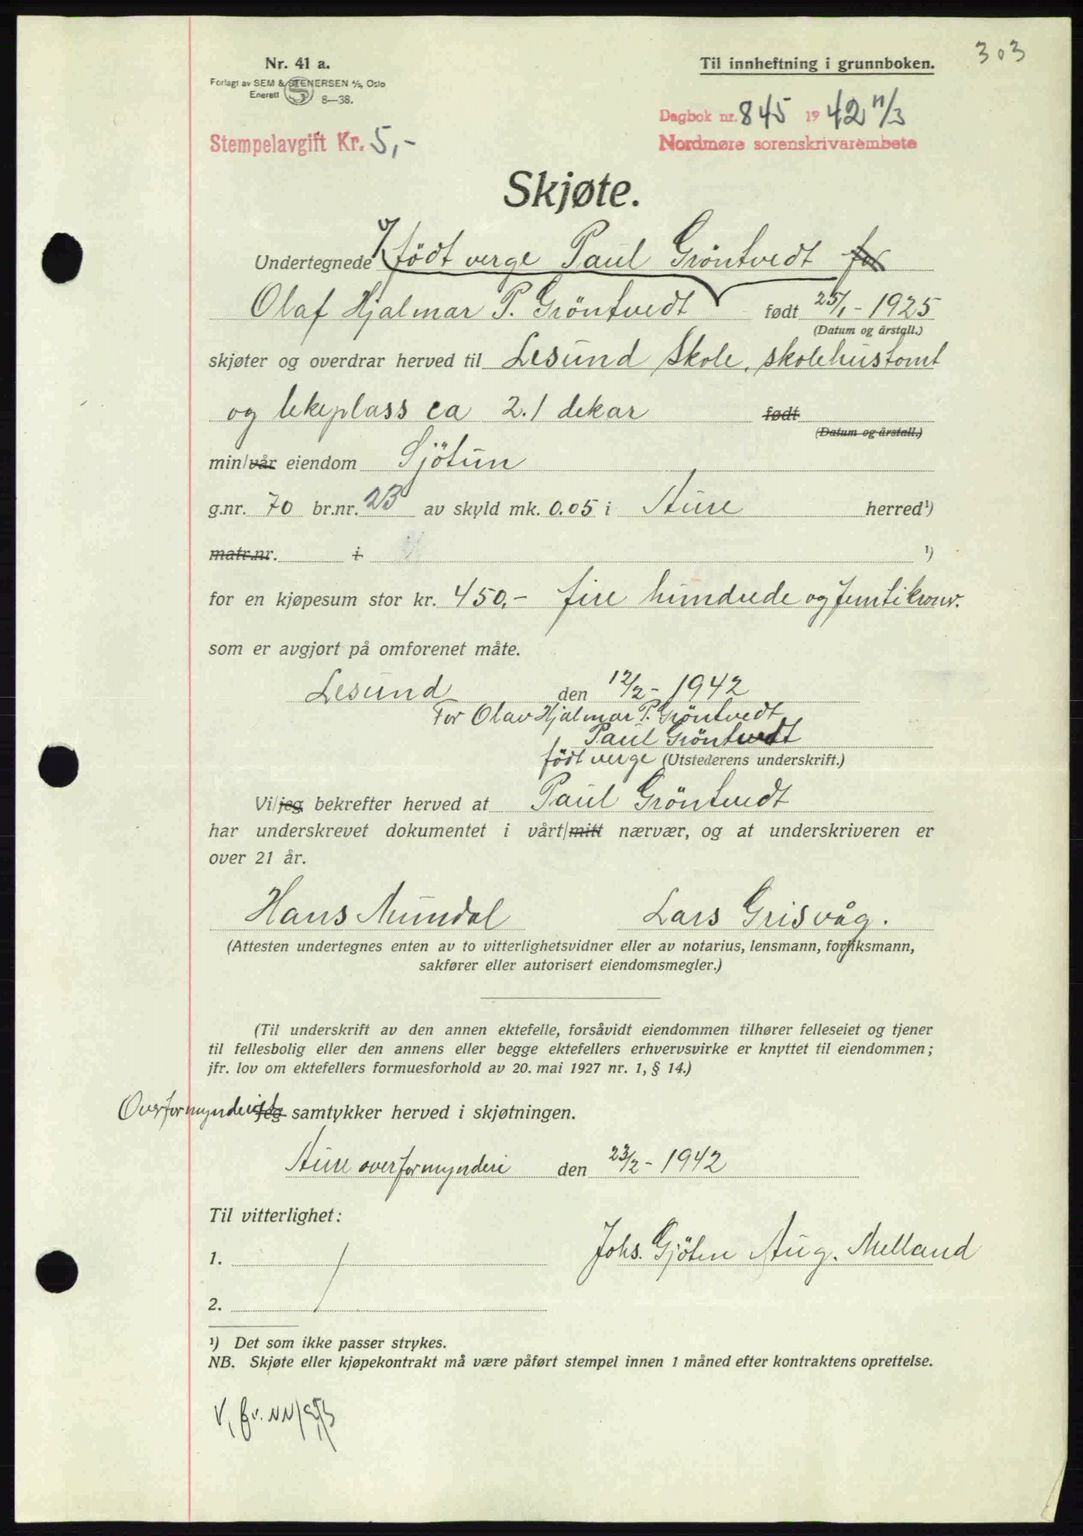 303
Nr. 41 a.
Til innheftning i grunnboken.
Forlagt av SEM & STENERSEN A/S, Oslo
Enerett 8—38.
Dagbok nr. 845 1942 11/3
Stempelavgift Kr. 5,-
Nordmøre sorenskrivarembete
Skjøte.
Undertegnede v/ födt verge Paul Gröntvedt for
Olaf Hjalmar P. Gröntvedt født 25/1 - 1925
(Datum og årstall.)
skjøter og overdrar herved til Lesund Skole, skolehustomt
og lekeplass ca 2.1 dekar født
(Datum og årstall.)
min/vår eiendom Sjötun
g.nr. 70 br.nr. 23 av skyld mk. 0.05 i Aure herred¹)
matr.nr. i ¹)
for en kjøpesum stor kr. 450,- fire hundrede og femti kroner.
som er avgjort på omforenet måte.
Lesund den 12/2 - 1942
For Olav Hjalmar P. Gröntvedt
Paul Gröntvedt
födt verge (Utstederens underskrift.)
Vi/jeg bekrefter herved at Paul Gröntvedt
har underskrevet dokumentet i vårt/mitt nærvær, og at underskriveren er
over 21 år.
Hans Mundal Lars Grisvåg.
(Attesten undertegnes enten av to vitterlighetsvidner eller av notarius, lensmann, forliksmann,
sakfører eller autorisert eiendomsmegler.)
(Til underskrift av den annen ektefelle, forsåvidt eiendommen tilhører felleseiet og tjener
til fellesbolig eller den annens eller begge ektefellers erhvervsvirke er knyttet til eiendommen;
jfr. lov om ektefellers formuesforhold av 20. mai 1927 nr. 1, § 14.)
Overformynderiet Jeg samtykker herved i skjøtningen.
Aure overformynderi den 23/2 - 1942
Til vitterlighet:
Johs. Gjöten Aug. Melland
1.
2.
¹) Det som ikke passer strykes.
NB. Skjøte eller kjøpekontrakt må være påført stempel innen 1 måned efter kontraktens oprettelse.